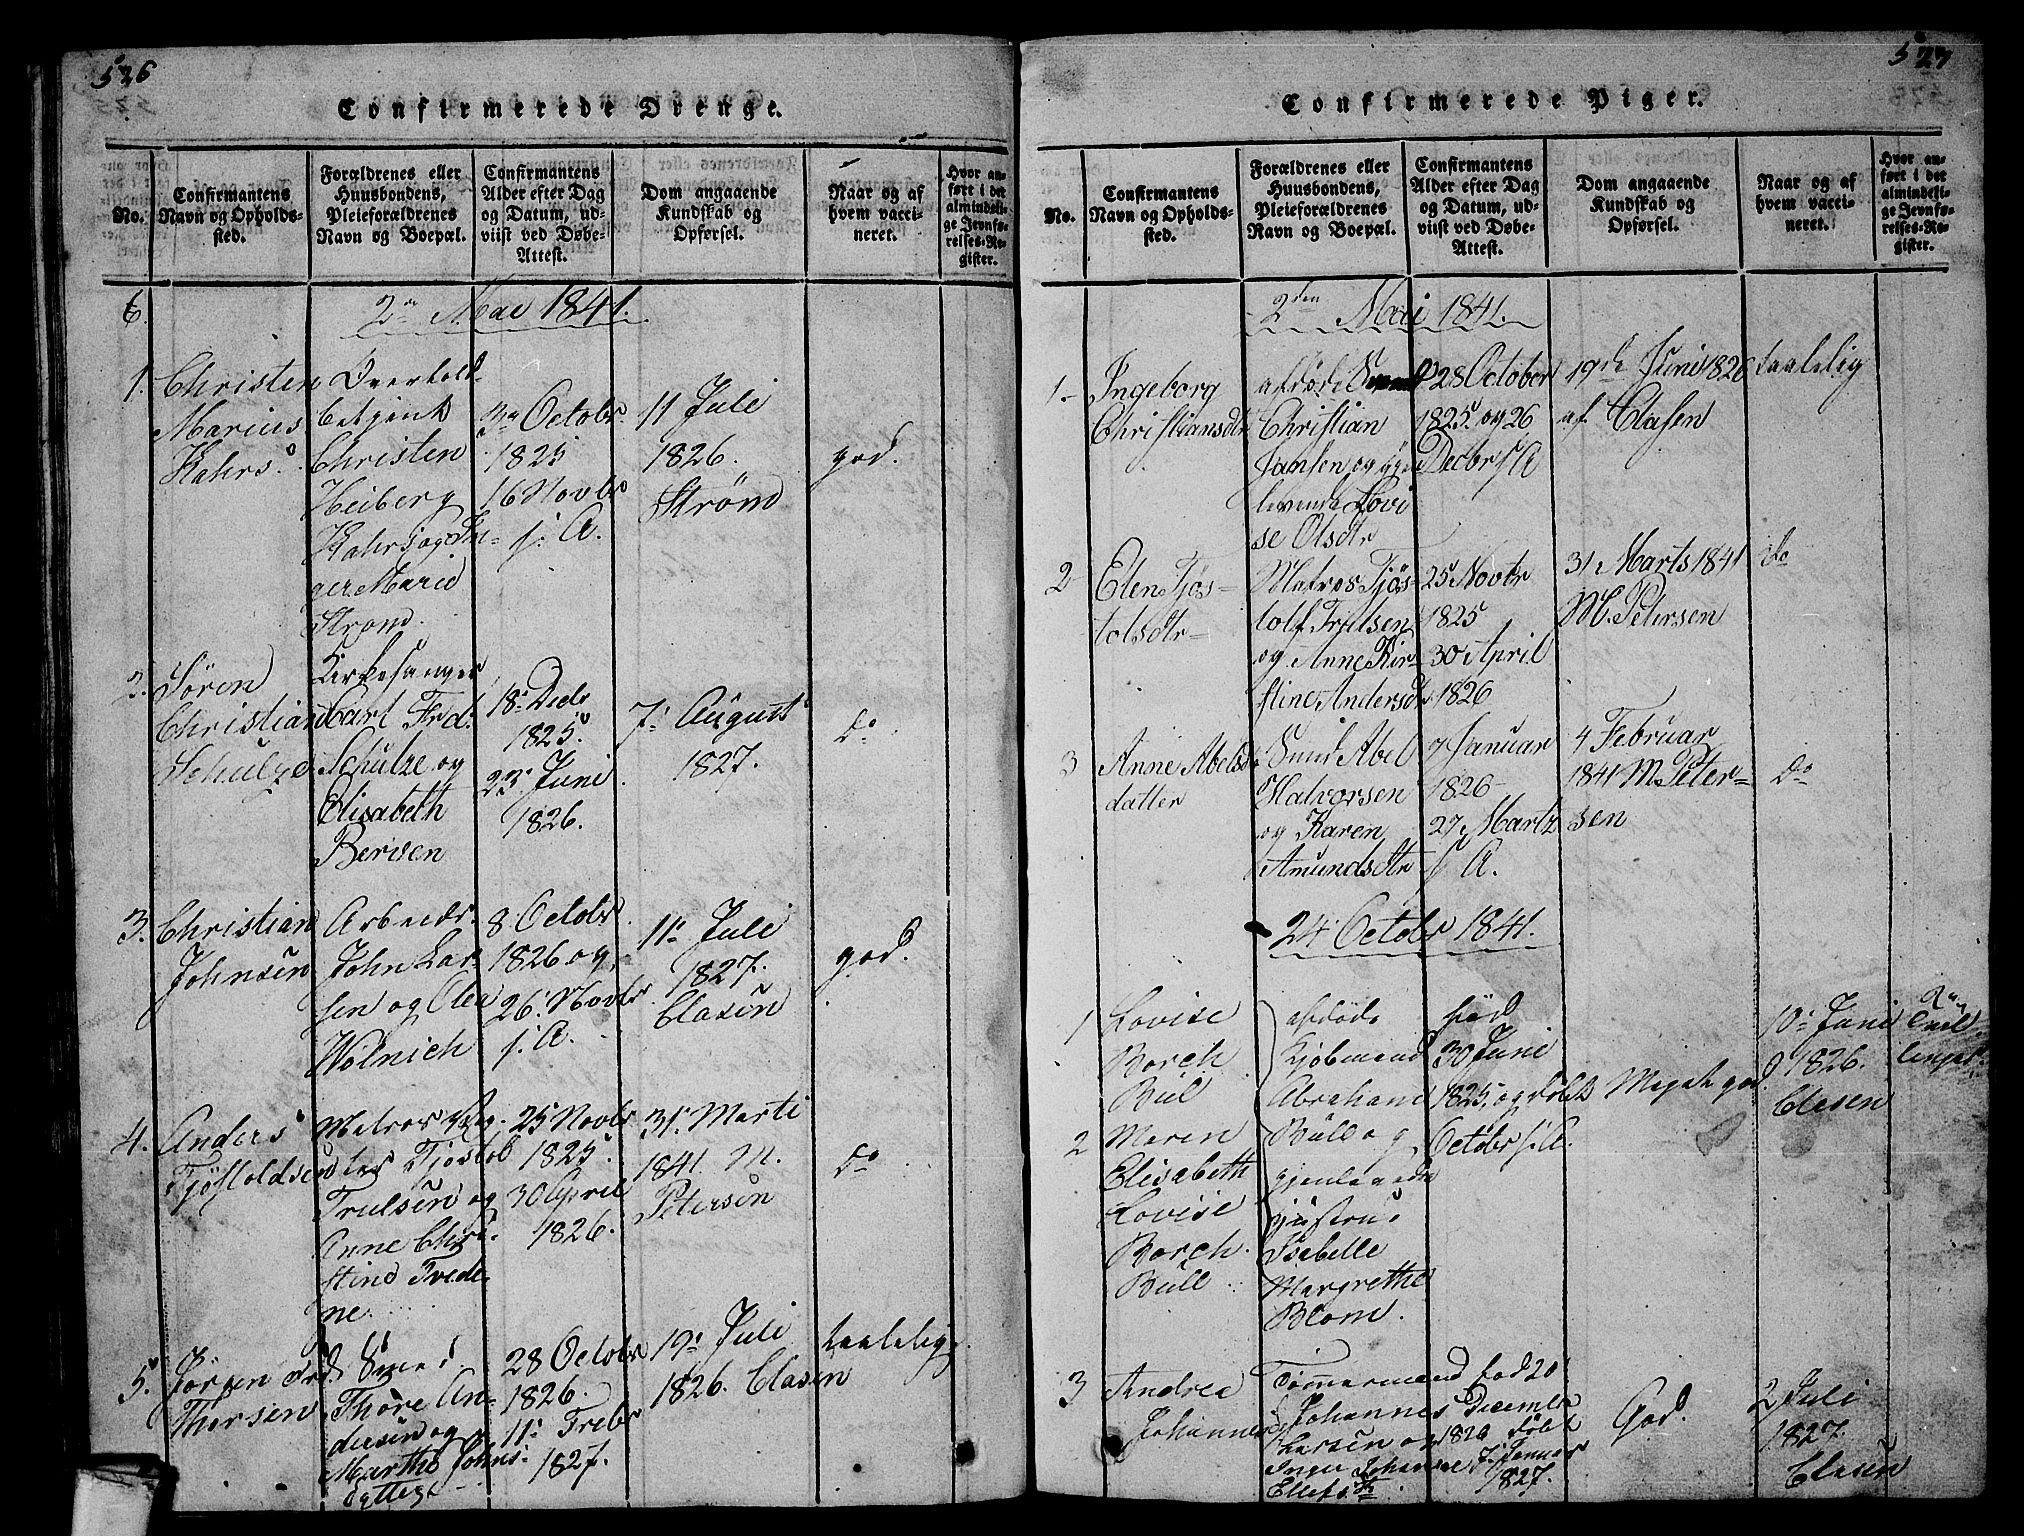 526
Confirmerede Drenge.
No.
Confirmantens
Navn og Opholds-
sted.
Forældrenes eller
Huusbondens,
Pleieforældrenes
Navn og Boepæl.
Confirmantens
Alder efter Dag
og Datum, ud-
viist ved Døbe-
Attest.
Dom angaaende
Kundskab og
Opførsel.
Naar og af
hvem vacci-
neret.
Hvor an-
ført i det
almindeli-
ge Jevnfø-
relses-Re-
gister.
6.
2den Mai 1841.
1.
Christen
Marius
Kahrs
Overtold-
betjent
Christen
Heiberg
Kahrs og In-
ger Marie
Strøm.
3die Octobr
1825
16 Novbr
s: A.
11 Juli
1826.
Strøm
god.
2.
Søren
Christian
Schulze
Kirkesanger
Carl Frd.
Schulze og
Elisabeth
Berven
18. Decbr
1825.
23. Juni
1826.
7. August
1827.
do
3.
Christian
Johnsen
Arbeidr.
John Lar
sen og Olea
Wolnich
8 Octobr
1826 og
26. Novbr
s: A.
11. Juli
1827.
Clasen
god.
4.
Anders
Tjøstoldsen
Matros
Tjostol
Trulsen og
Anne Chri-
stine Tvede-
ne.
25 Novbr
1825.
30 April
1826.
31. Marti
1841. M.
Petersen
do
5.
Jørgen Frd.
Thorsen
Smed
Thore An-
dersen og
Marthe Johns-
datter
28 Octobr
1826.
11. Febr
1827.
19. Juli
1826. Clasen
taalelig
527
Confirmerede Piger.
No.
Confirmantens
Navn og Opholds-
sted.
Forældrenes eller
Huusbondens,
Pleieforældrenes
Navn og Boepæl.
Confirmantens
Alder efter Dag
og Datum, ud-
viist ved Døbe-
Attest.
Dom angaaende
Kundskab og
Opførsel.
Naar og af
hvem vacci-
neret.
Hvor an-
ført i det
almindeli-
ge Jevnfø-
relses-Re-
gister.
2den Mai 1841.
1.
Ingeborg
Christiansdtr
afdøde
Christian
Jansen og gjen
levende Lovi
se Olsdtr
28 October
1825 og 26
Decbr s A
19de Juni 1826
af Clasen
taalelig
2
Elen Tjøs-
tolsdtr
Matros Tjøs-
tolf Trulsen
og Anne Kir-
stine Andersdtr
25 Novbr
1825
30 April
1826
31 Marts 1841
M. Petersen
do
3
Anne Abels
datter
Smed Abel
Halvorsen
og Karen
Amundsdtr
7 Januar
1826
27 Martz
s A.
4 Februar
1841 M. Peter-
sen
do
24 Octobr 1841.
1
Lovise
Borch
Bull
2
Maren
Elisabeth
Lovise
Borch
Bull
afdøde
Kjøbmand
Abraham
Bull og
gjenlevende
Hustrue
Isabelle
Margrethe
Blom.
fød
30 Juni
1825. og døbt
Octobr s: A.
Meget god.
10. Juni
1826.
Clasen
Tvil
linger.
3
Andrea
Johannes
Tømmermand
Johannes
Larsen og
Inger Johanne
Ellefsdtr
fød 20
December
1826 døbt
7. Januar
1827.
God.
2 Juli
1827.
Clasen